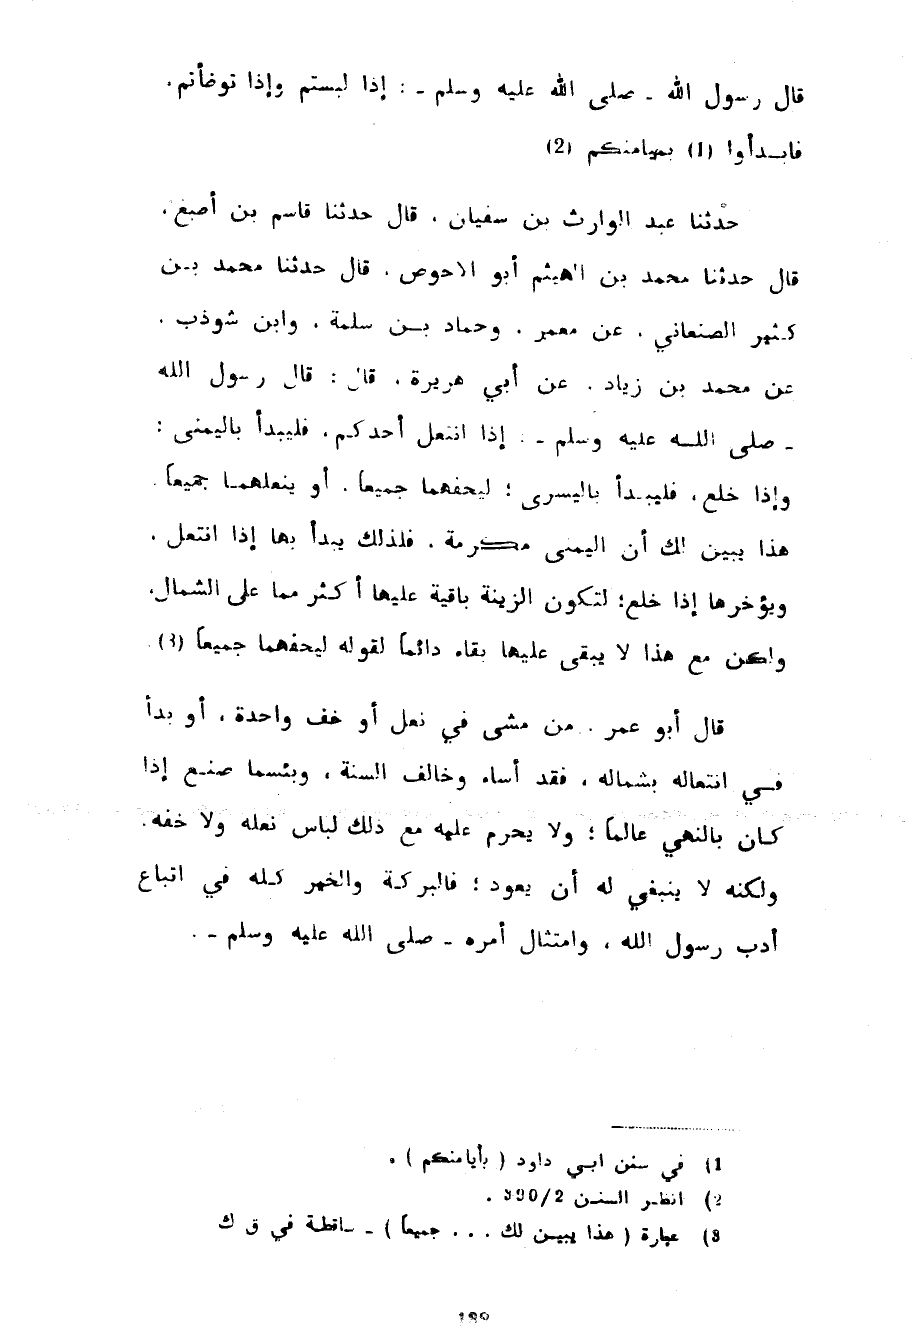 قال رسول الله ـ صلى الله عليه وسلم ـ : إذا لبستم وإذا توضأتم،
فابـدأوا (1) بميامنكم (2)
حدثنا عبد الوارث بن سفيان ، قال حدثنا قاسم بن أصبغ،
قال حدثنا محمد بن الهيثم أبو الاحوص ، قال حدثنا محمد بـن
كثير الصنعاني ، عن معمر ، وحماد بـن سلمة ، وابن شوذب ،
عن محمد بن زياد ، عن أبي هريرة ، قال : قال رسول الله
ـ صلى اللـه عليه وسلم ـ : إذا انتعل أحدكم، فليبدأ باليمنى ؛
وإذا خلع، فليبـدأ باليسرى ؛ ليحفهما جميعاً ، أو ينعلهمـا جميعاً .
هذا يبين لك أن اليمنى مكرمة ، فلذلك يبدأ بها إذا انتعل ،
ويؤخرها إذا خلع؛ لتكون الزينة باقية عليها أكثر مما على الشمال،
ولكن مع هذا لا يبقى عليها بقاء دائماً لقوله ليحفهما جميعاً (3) .
قال أبو عمر : من مشى في نعل أو خف واحدة ، أو بدأ
فـي انتعاله بشماله ، فقد أساء وخالف السنة ، وبئسما صنـع إذا
كـان بالنهي عالماً ؛ ولا يحرم عليه مع ذلك لباس نعله ولا خفه.
ولكنه لا ينبغي له أن يعود ؛ فالبركـة والخير كـله في اتباع
أدب رسول الله ، وامتثال أمره ـ صلى الله عليه وسلم ـ .
1) في سنن ابـي داود ( بأيامنكم ) .
2) انظـر السنـن 2/390 .
3) عبارة ( هذا يبيـن لك . . . جميعاً ) ـ ساقطـة في ق ك